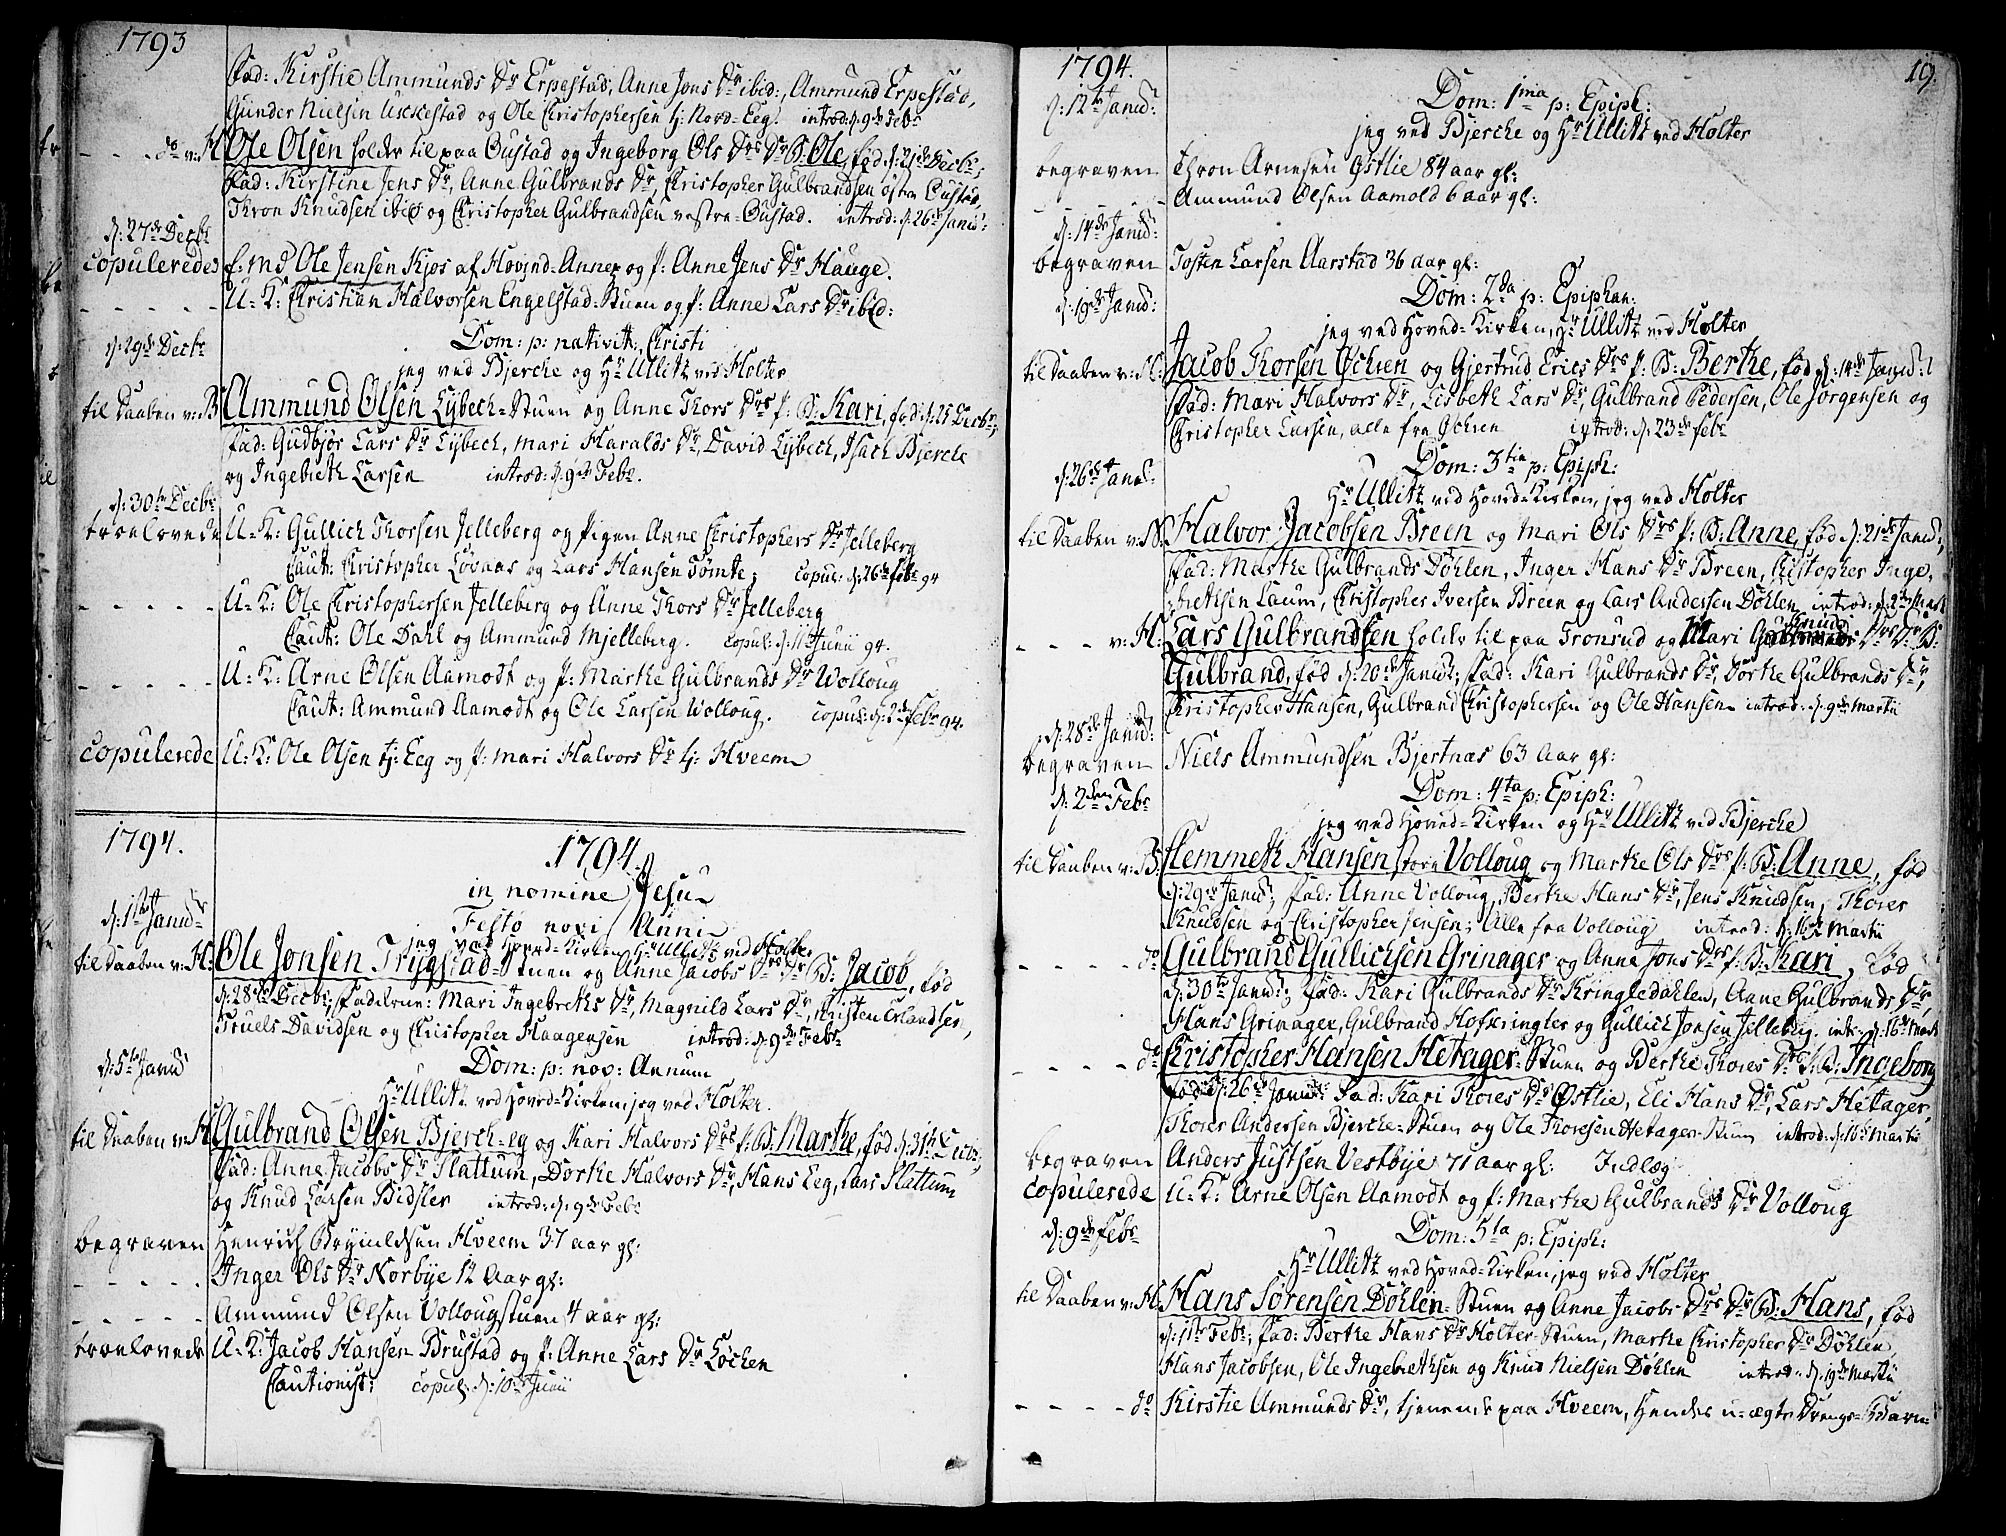 1793
Fad: Kirstie Ammunds Dr Erpestad, Anne Jons Dr ibid:, Ammund Erpestad,
Gunder Nielsen Ukkestad og Ole Christophersen tj: Nord-Eeg. introd: d: 9de Febr
- - - do v: H Ole Olsen holder til paa Gustad og Ingeborg Ols Drs Dr B: Ole, fød d: 21de Decbr;
Fad: Kirstine Jens Dr, Anne Gulbrands Dr, Christopher Gulbrandsen østre Gustad,
Thron Knudsen ibid og Christopher Gulbrandsen vestre-Gustad. introd: d: 26de Janu:
d: 27de Decbr
copulerede f: md Ole Jensen Kjos af Hovind-Annex og p: Anne Jens Dr Hauge.
- - - - - U-K: Christian Halvorsen Engelstad-Stuen og p: Anne Lars Dr ibid:
d: 29de Decbr Dom: p: nativit: Christi
jeg ved Bjercke og Hr Ullitz ved Holter
til Daaben v: B Ammund Olsen Lybech-Stuen og Anne Thors Drs p: B: Kari, fød: d: 25 Decbr;
Fad: Gudbjør Lars Dr Lybech, Mari Haralds Dr, David Lybech, Isach Bjercke
og Ingebreth Larsen introd: d: 9de Febr.
d: 30te Decbr
troelovede U-K: Gullich Thorsen Jelleberg og Pigen Anne Christophers Dr Jelleberg
Caut: Christopher Lovaas og Lars Hansen Tomte. copul: d: 26de Febr 94
- - - - - U-K: Ole Christophersen Jelleberg og Anne Thors Dr Jelleberg
Caut: Ole Dahl og Ammund Mjelleberg. copul: d: 11te Junii 94.
- - - - - U-K: Arne Olsen Aamodt og p: Marthe Gulbrands Dr Wolloug
Caut: Ammund Aamodt og Ole Larsen Wolloug. copul: d: 2de Febr 94.
copulerede U-K: Ole Olsen tj: Eeg og p: Mari Halvors Dr tj: Hveem
1794. 1794.
in nomine Jesu
d: 1ste Janu: Festo novi Anni
jeg ved Hoved-Kirken Hr Ullitz ved Holter
til Daaben v: H: Ole Jonsen Trygstad-Stuen og Anne Jacobs Drs Dr B: Jacob, fød
d: 28de Decbr; Fadderne: Mari Ingebreths Dr, Magnild Lars Dr, Christen Erlandsen,
Truels Davidsen og Christopher Haagensen introd: d: 9de Febr
d: 5te Janu: Dom: p: nov: Annum
Hr Ullitz ved Hoved-Kirken, jeg ved Holter.
til Daaben v: H Gulbrand Olsen Bjerch-eg og Kari Halvors Drs p: B: Marthe, fød d: 31te Decbr;
Fad: Anne Jacobs Dr Slattum, Dorthe Halvors Dr, Hans Eeg, Lars Slattum
og Knud Larsen Bidsler introd: d: 9de Febr
begraven Henrich Bryjnildsen Hveem 37 aar gl:
- - - - - Inger Ols Dr Norbye 12 Aar gl:
- - - - - Ammund Olsen Vollougstuen 4 aar gl:
troelovede U-K: Jacob Hansen Brustad og p: Anne Lars Dr Lochen
Cautionist: copul: d: 10de Junii
1794. 19.
d: 12te Janu: Dom: 1ma p: Epiph:
jeg ved Bjercke og Hr Ullitz ved Holter
begraven Thron Arnesen Østlie 84 aar gl:
- - - - - Ammund Olsen Aamold 6 aar gl:
d: 14de Janu:
begraven Tosten Larsen Aarstad 36 aar gl:
d: 19de Janu: Dom: 2da p: Epiphan:
jeg ved Hoved-Kirken, Hr Ullitz ved Holter
til Daaben v: H: Jacob Thorsen Ochren og Gjertrud Erics Drs p: B: Berthe, fød d: 14de Janu:
Fad: Mari Halvors Dr, Lisbeth Lars Dr, Gulbrand Pedersen, Ole Jørgensen og
Christopher Larsen, alle fra Ochren introd: d: 23de Febr
d: 26de Janu: Dom: 3tia p: Epiph:
Hr Ullitz ved Hoved-Kirken, jeg ved Holter
til Daaben v: N: Halvor Jacobsen Breen og Mari Ols Drs p: B: Anne, fød d: 21de Janu:,
Fad: Marthe Gulbrands Døhlen, Inger Hans Dr Breen, Christopher Inge-
brethsen Laum, Christopher Iversen Breen og Lars Andersen Døhlen introd: d: 2den Mart
- - - v: H: Lars Gulbrandsen holder til paa Tronrud og Mari Knuds Drs Dr B:
Gulbrand, fød d: 20de Janu:; Fad: Kari Gulbrands Dr, Dorthe Gulbrands Dr,
Christopher Hansen, Gulbrand Christophersen og Ole Hansen introd: d: 9de Martii
d: 28de Janu:
begraven Niels Ammundsen Bjertnæs 63 Aar gl:
d: 2den Febr Dom: 4ta p: Epiph:
jeg ved Hoved-Kirken og Hr Ullitz ved Bjercke
til Daaben v: B: Clemmeth Hansen store Volloug og Marthe Ols Drs p: B: Anne, fød
d: 29de Janu:; Fad: Anne Volloug, Berthe Hans Dr, Jens Knudsen, Thorer
Knudsen og Christopher Jensen; Alle fra Volloug introd: d: 16de Martii
- - - - do Gulbrand Gullichsen Grinager og Anne Jons Drs p: B: Kari, fød
d: 30te Janu:; Fad: Kari Gulbrands Dr Kringledahlen, Anne Gulbrands Dr,
Hans Grinager, Gulbrand Hofkringler og Gullich Jonsen Jelleberg. intr: d: 16de Mart
- - - - do Christopher Hansen Hetager-Stuen og Berthe Thores Drs p: B: Ingeborg
fød d: 26de Janu: Fad: Kari Thores Dr Østlie, Eli Hans Dr, Lars Hetager,
Thorer Andersen Bjercke-Stuen og Ole Thoresen Hetager-Stuen introd: d: 16de Martii
begraven Anders Justsen Vestbye 71 Aar gl: Indlæg
copulerede U-K: Arne Olsen Aamodt og p: Marthe Gulbrands Dr Volloug
d: 9de Febr Dom: 5ta p: Epiph:
Hr Ullitz ved Hoved-Kirken, jeg ved Holter
til Daaben v: H: Hans Sørensen Døhlen-Stuen og Anne Jacobs Drs Dr B: Hans, fød
d: 1ste Febr; Fad: Berthe Hans Dr Holter-Stuen, Marthe Christopher Dr Døhlen,
Hans Jacobsen, Ole Ingebrethsen og Knud Nielsen Døhlen introd: d: 19de Martii
- - - - do Kirstie Ammunds Dr, tjenende paa Hveem, hendes u-ægte Drenge-Barn